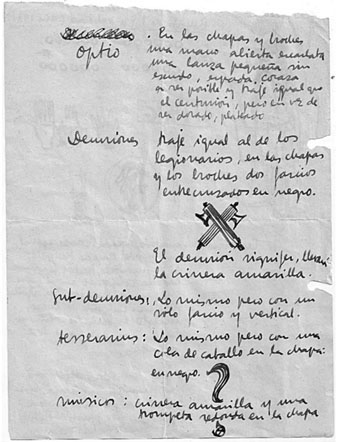 optio . En las chapas y broches
una mano abierta encarnada
una lanza pequeña sin
escudo, espada, coraza
a ser posible y traje igual que
el centurión, pero en vez de
ser dorado, plateado
Decuriones traje igual al de los
legionarios, en las chapas
y los broches dos fascios
entrecruzados en negro.
El decurión signifer, llevará
la crinera amarilla.
Sut-decuriones: Lo mismo pero con un
solo fascio y vertical.
tesserarius: Lo mismo pero con una
cola de caballo en la chapa:
en negro.
músicos: crinera amarilla y una
trompeta redonda en la chapa